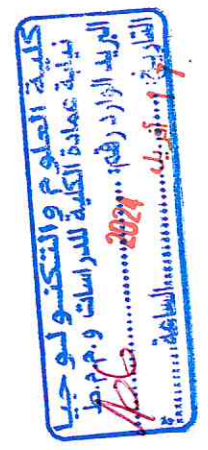 كلية العلوم والتكنولوجيا
نيابة عمادة الكلية للدراسات و.م.م.ط
البريد الوارد رقم:
التاريخ: أفريل 2024
الساعة: